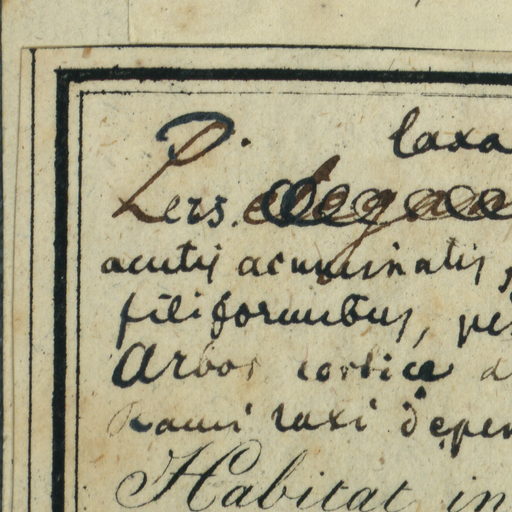 P. laxa
Pers. elegan
acutis acuminatis,
filiformibus, pe
Arbor cortice a
Rami laxi depen
Habitat in